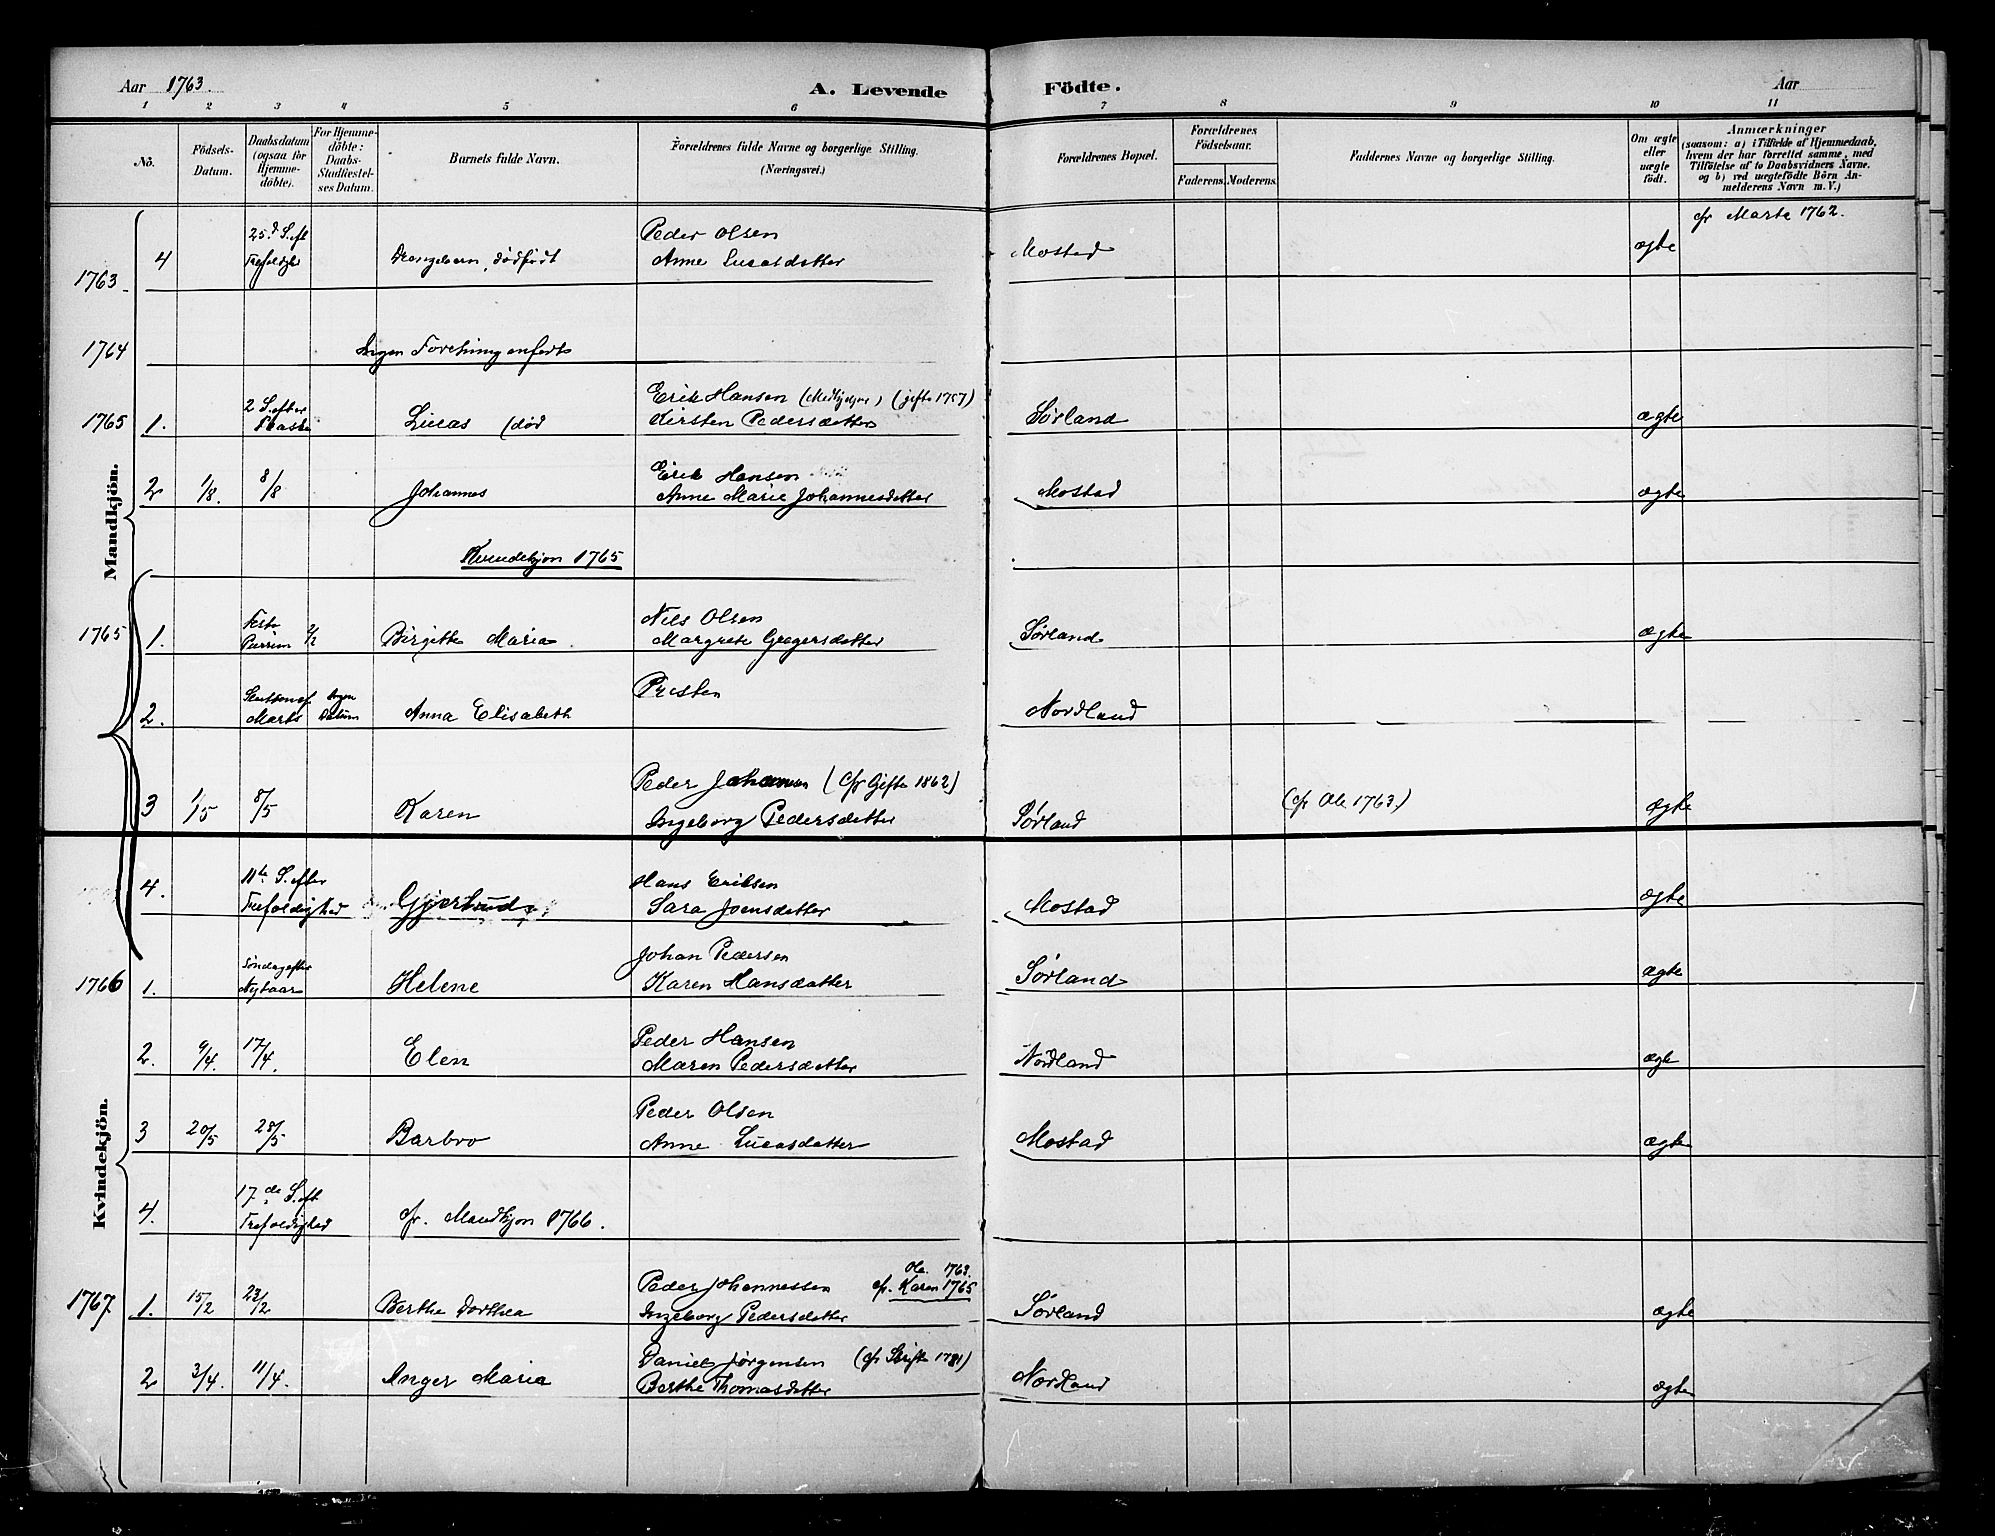 Aar 1763.
A. Levende Födte.
Aar
1 2 3 4 5 6 7 8 9 10 11
Nö.
Födsels-
Datum.
Daabsdatum
(ogsaa for
Hjemme-
döbte).
For Hjemme-
döbte:
Daabs-
Stadfæstel-
ses Datum.
Barnets fulde Navn.
Forældrenes fulde Navne og borgerlige Stilling.
(Næringsvei.)
Forældrenes Bopæl.
Forældrenes
Födselsaar.
Faderens. Moderens.
Faddernes Navne og borgerlige Stilling.
Om ægte
eller
uægte
födt.
Anmærkninger
(saasom: a) i Tilfælde af Hjemmedaab,
hvem der har forrettet samme, med
Tilföielse af to Daabsvidners Navne.
og b) ved uægtefödte Börn An-
melderens Navn m. V.)
Mandkjön.
Kvindekjön.
cfr Marte 1762.
25d S. eft Peder Olsen
1763 4 Trefoldgh Drengebarn, dødfødt Anne Lucasdatter Mostad ægte
1764 Ingen
2 S. efter Erik Hansen (gift 1757)
1765 1. Paaske Lucas (død Kirsten Pedersdatter Sørland ægte
Erik Hansen
2 1/8. 8/8 Johannes Anne Marie Johannesdatter Mostad ægte
Kvindekjøn 1765
Nils Olsen
1765 1. 2/2 Birgitte Maria Margrete Gregersdatter Sørland ægte
Ingen Presten
2. Marts Datum Anna Elisabeth Nordland
Peder Johannsen (cfr Gifte 1862)
3 1/5 8/5 Karen Ingeborg Pedersdatter Sørland (cfr Ole 1763.) ægte
11te S. efter Hans Eriksen
4. Trefoldighed Gjertrud Sara Joensdatter Mostad ægte
Søndag efter Johan Pedersen
1766 1. Nytaar Helene Karen Hansdatter Sørland ægte
Peder Hansen
2. 9/4. 17/4. Elen Maren Pedersdatter Nordland ægte
Peder Olsen
3 20/5 28/5 Barbro Anne Lucasdatter Mostad ægte
17de S. eft
4. Trefoldighed cfr. Mandkjøn 1766.
Ole 1763.
Peder Johannessen cfr. Karen 1765
1767. 1. 15/2 23/2 Berthe Dorthea Ingeborg Pedersdatter Sørland ægte
Daniel Jørgensen (cfr Skifte 1781)
2 3/4. 11/4. Anger Maria Berthe Thomasdatter Nordland ægte